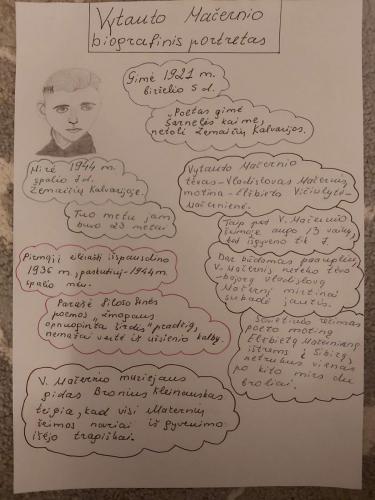 Vytauto Mačernio
biografinis portretas
Gimė 1921 m.
birželio 5 d.
„Poetas gimė
Šarnelės kaime,
netoli Žemaičių Kalvarijos.
Mirė 1944 m.
spalio 7 d.
Žemaičių Kalvarijoje.
Tuo metu jam
buvo 23 metai.
Vytauto Mačernio
tėvas-Vladislovas Mačernis,
motina-Elžbieta
Mačernienė.
Taip pat V. Mačernio
šeimoje augo 13 vaikų,
bet išgyveno tik 7.
Pirmąjį eilėraštį išspausdino
1936 m., paskutinį-1944m.
spalio mėn.
Dar būdamas paauglys,
V. Mačernis neteko tėvo
Vladislovą
Mačernį mirtinai
subadė jautis.
Parašė filosofinės
poemos „Žmogaus
apnuoginta širdis" pradžią,
nemažai vertė iš užsienio kalbų.
Sovietinis režimas
poeto motiną
Elžbietą Mačernienę
ištrėmė į Sibirą,
netrukus vienas
po kito mirė du
broliai.
V. Mačernio muziejaus
gidas Bronius Kleinauskas
teigia, kad visi Mačernių
šeimos nariai iš gyvenimo
išėjo tragiškai.